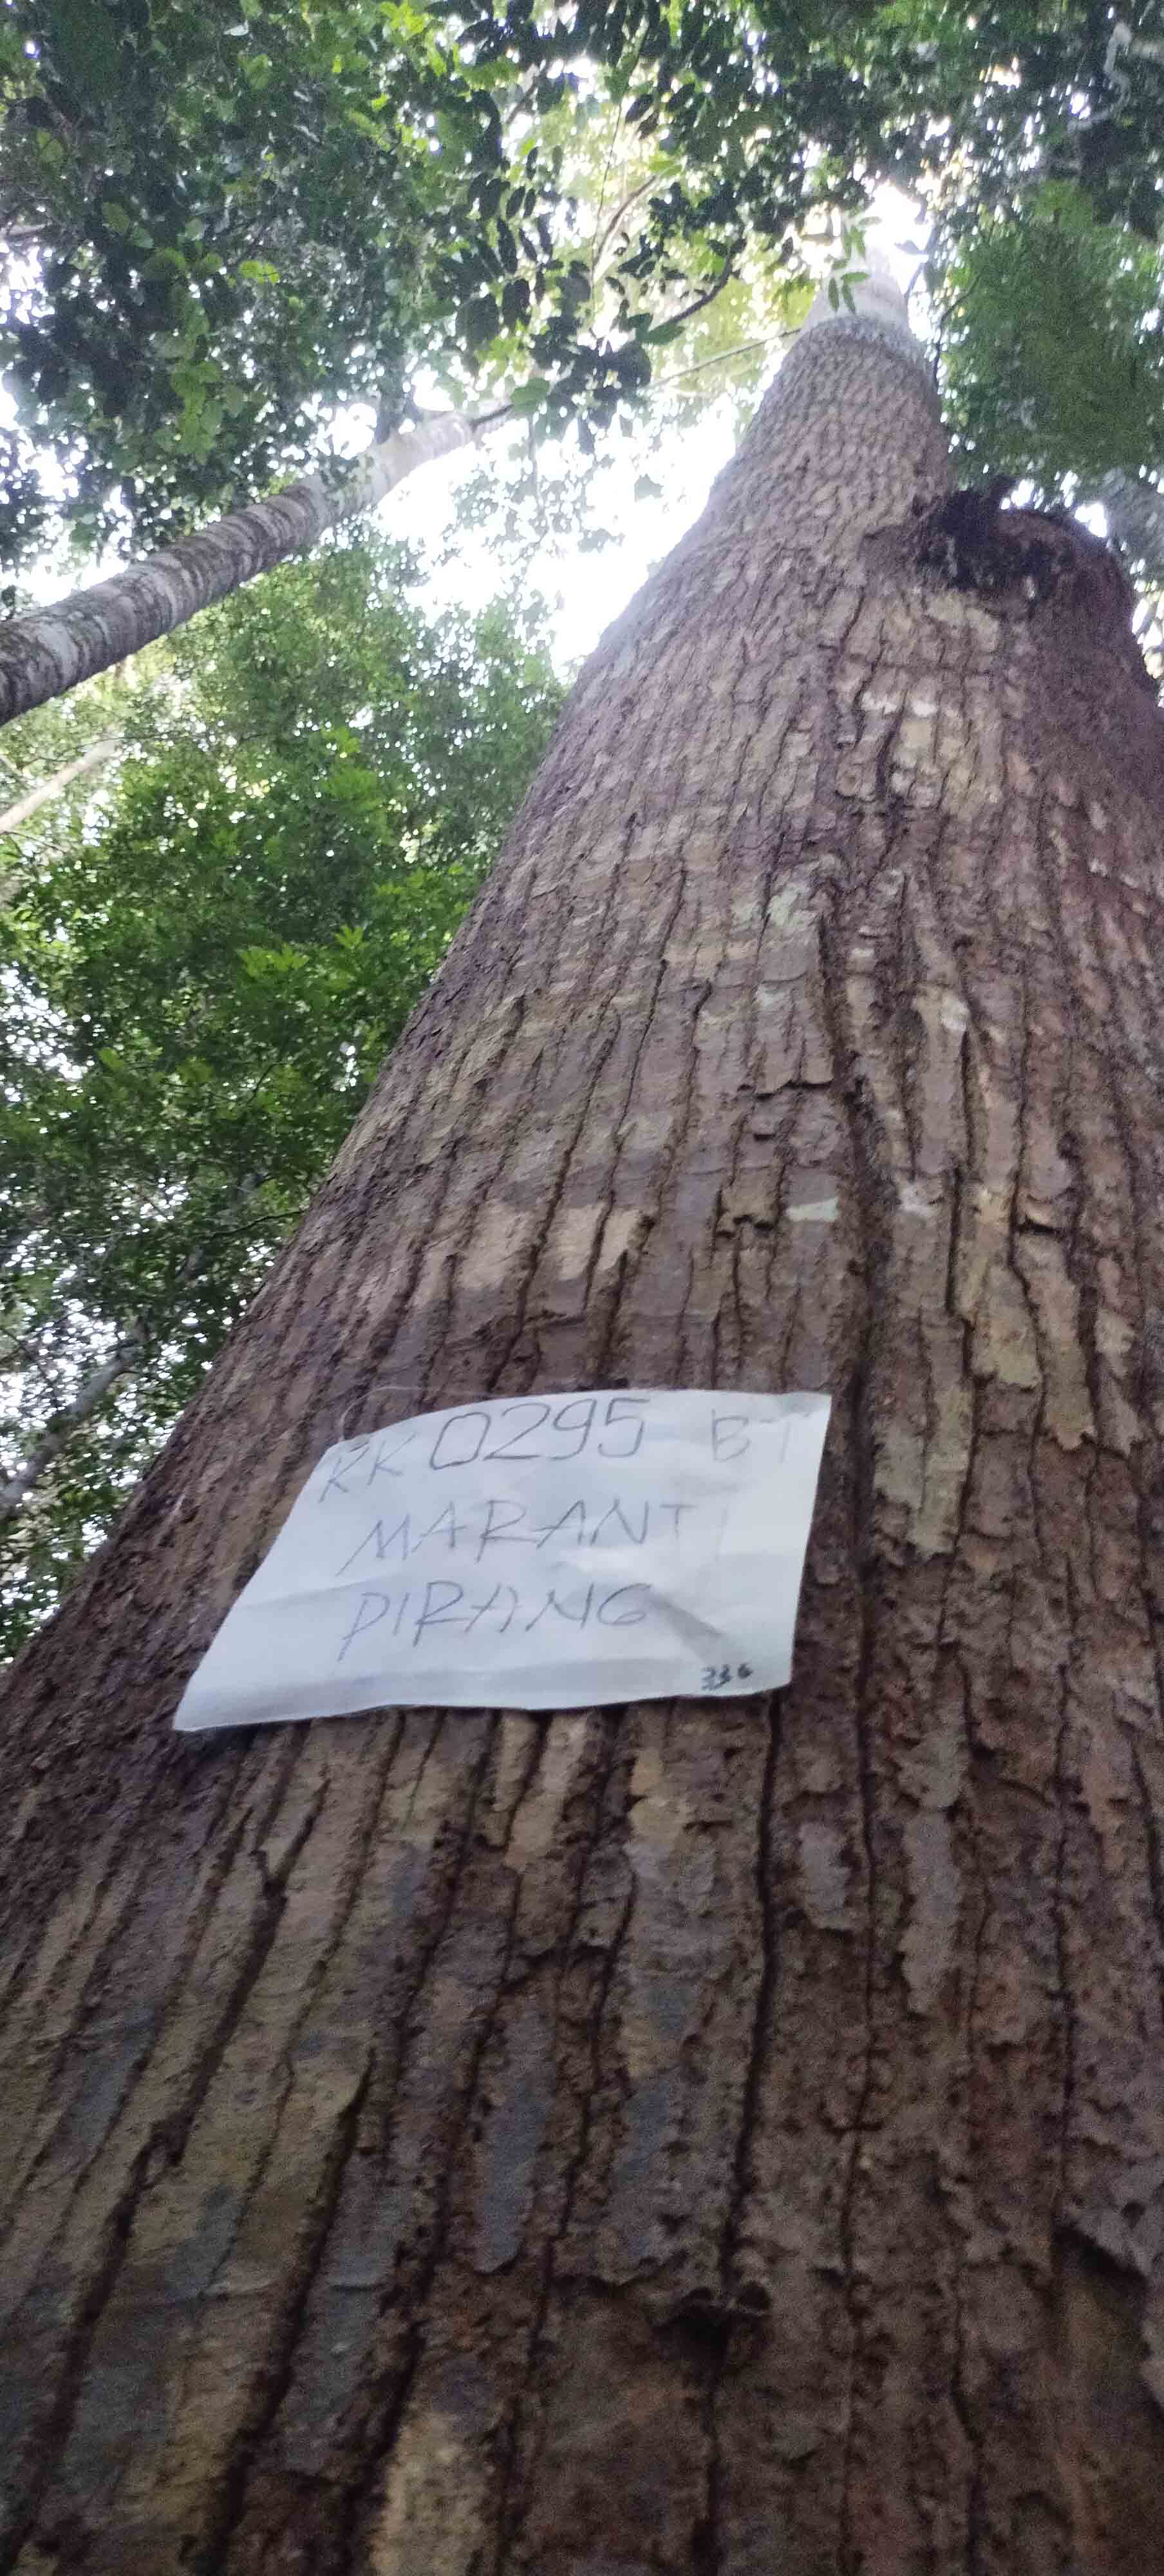 KK 0295 BT
MARANTI
PIRANG
336